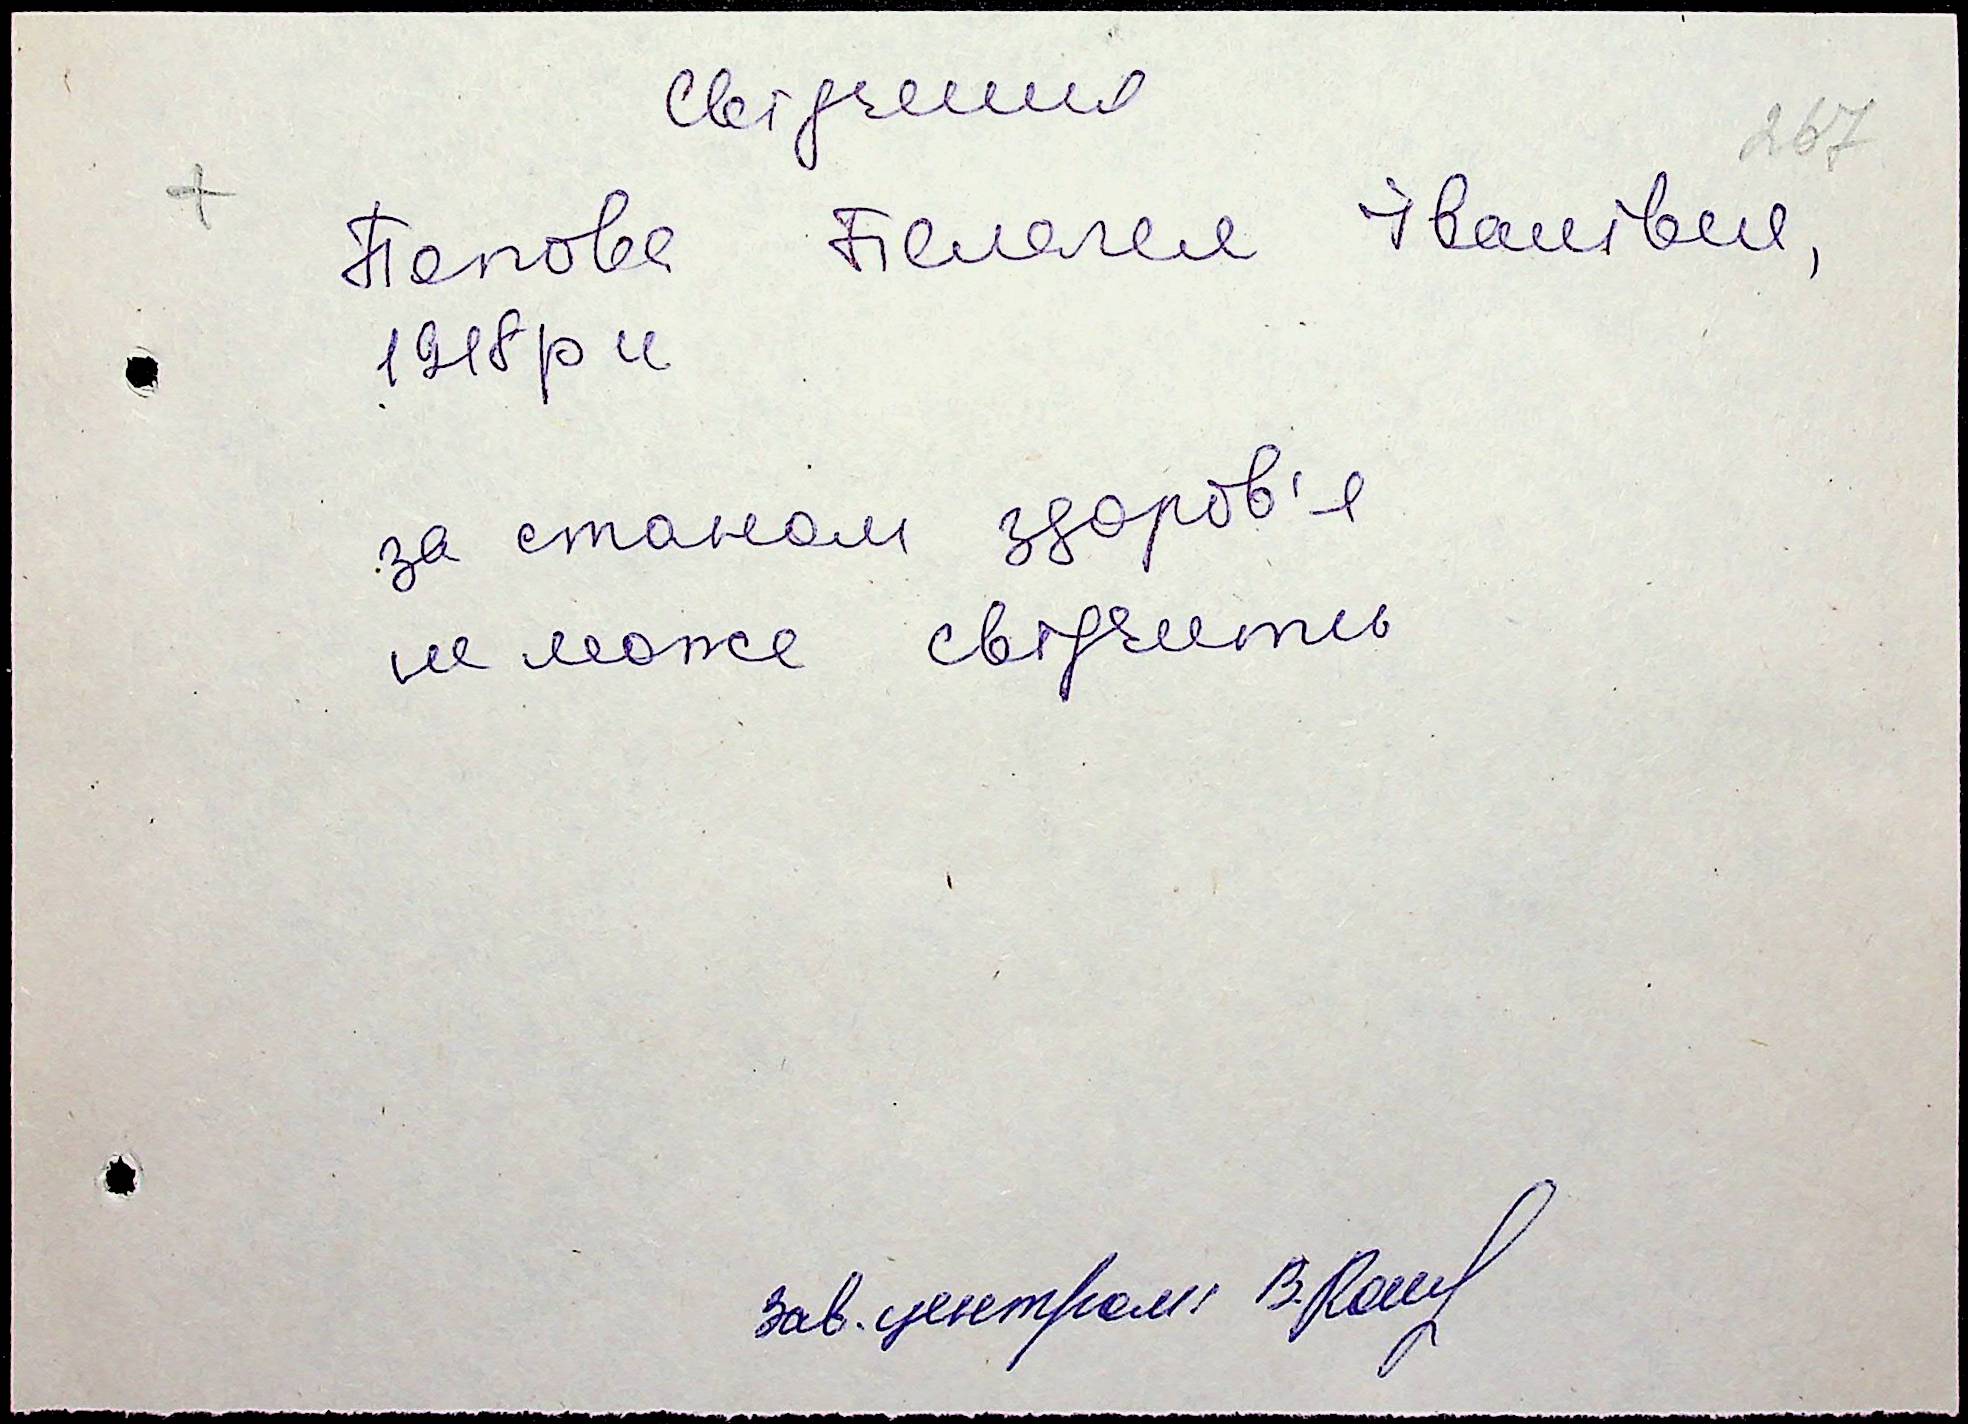 Свідчення
267
+
Попова Пелагея Іванівна,
1918 р н
за станом здоров'я
не може свідчить
зав. центром: В.